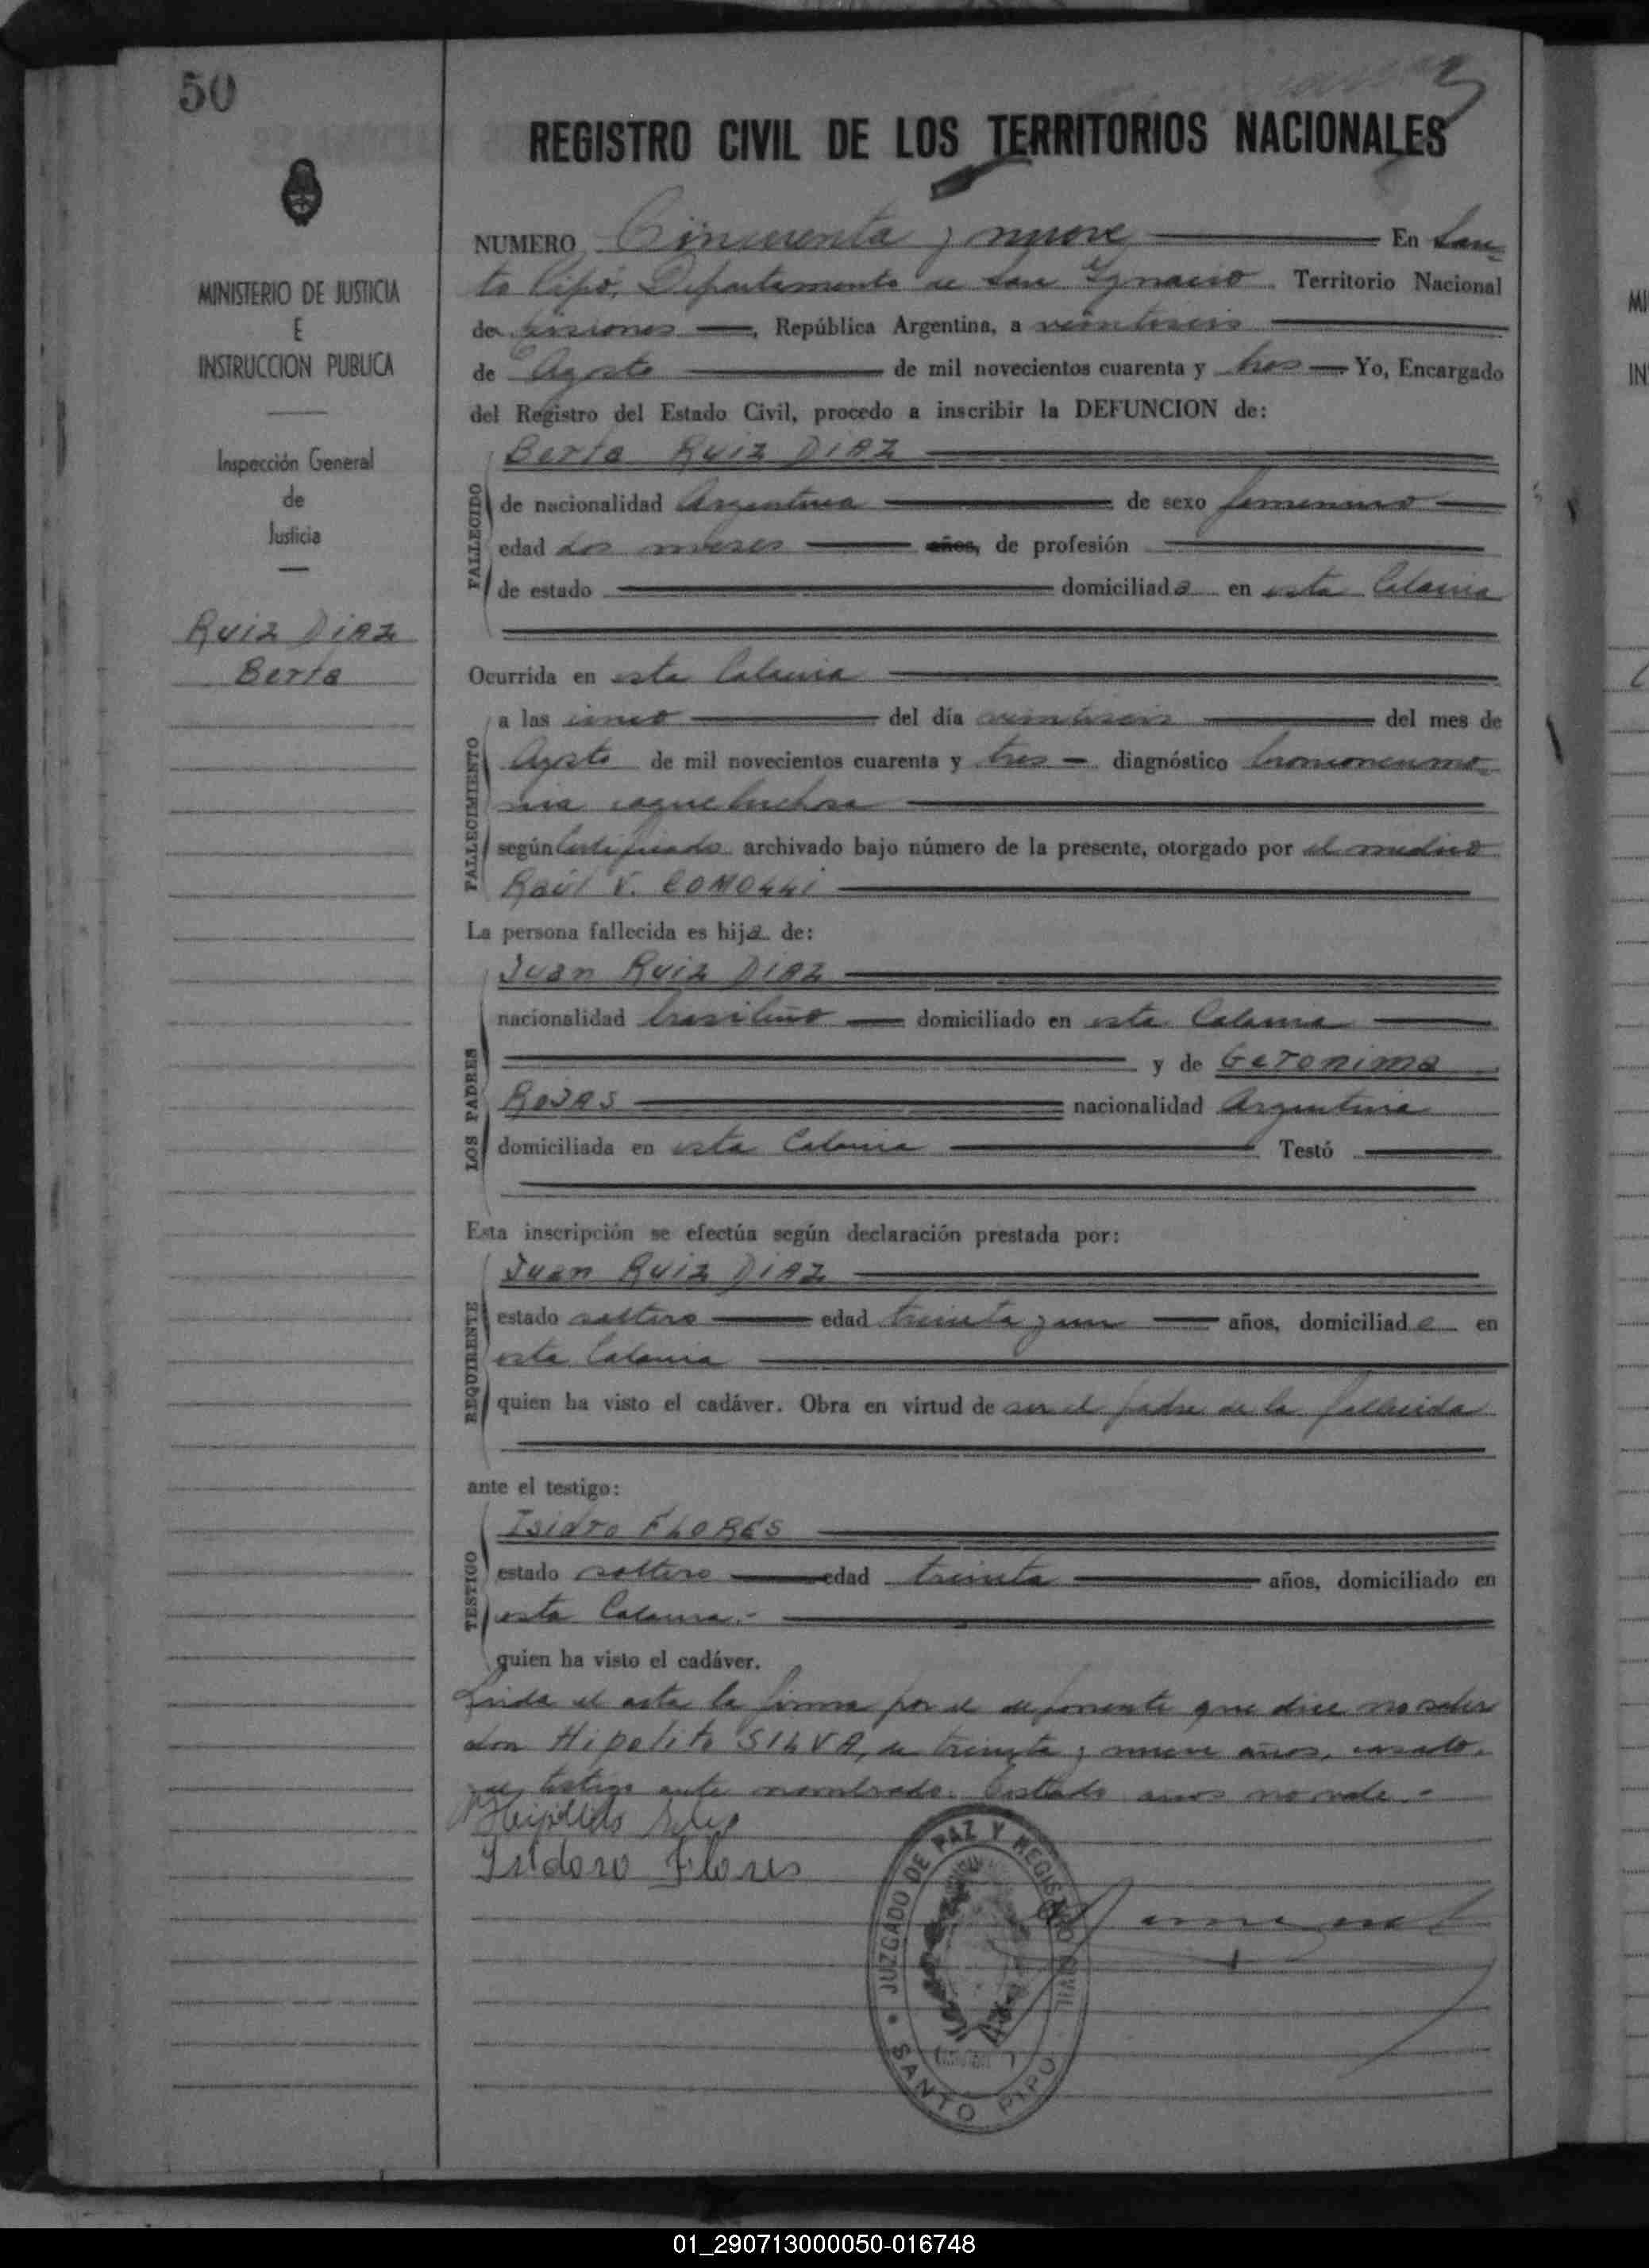 50
REGISTRO CIVIL DE LOS TERRITORIOS NACIONALES
MINISTERIO DE JUSTICIA
E
INSTRUCCION PUBLICA
Inspección General
de
Justicia
Ruiz DiAZ
Berta
NUMERO Cincuenta y nueve En San-
to Pipó, Departamento de San Ygnacio. Territorio Nacional
de Misiones, República Argentina, a veintiseis
de Agosto de mil novecientos cuarenta y tres Yo, Encargado
del Registro del Estado Civil, procedo a inscribir la DEFUNCION de:
FALLECIDO
Berta Ruiz DiAZ
de nacionalidad Argentina de sexo femenino
edad dos meses años, de profesión
de estado domiciliada en esta Colonia
Ocurrida en esta Colonia
FALLECIMIENTO
a las cinco del día veintiseis del mes de
Agosto de mil novecientos cuarenta y tres diagnóstico bronconeumo-
nia coqueluchosa
según Certificado archivado bajo número de la presente, otorgado por el medico
Raúl V. COMOLLi
La persona fallecida es hija de:
LOS PADRES
Juan Ruiz DiAZ
nacionalidad brasileño domiciliado en esta Colonia
y de Geronima
ROJAS nacionalidad Argentina
domiciliada en esta Colonia Testó
Esta inscripción se efectúa según declaración prestada por:
REQUIRENTE
Juan Ruiz DiAZ
estado soltero edad treinta y un años, domiciliado en
esta Colonia
quien ha visto el cadáver. Obra en virtud de ser el padre de la fallecida
ante el testigo:
TESTIGO
Isidro FLORES
estado soltero edad treinta años, domiciliado en
esta Colonia.-
quien ha visto el cadáver.
Leida el acta la firma por el deponente que dice no saber
don Hipolito SILVA, de treinta y nueve años, casado,
y el testigo ante nombrado. Testado años no vale.-
Hipolito Silva
Isidoro Flores
JUZGADO DE PAZ Y REGISTRO CIVIL
SANTO PIPO
01_290713000050-016748